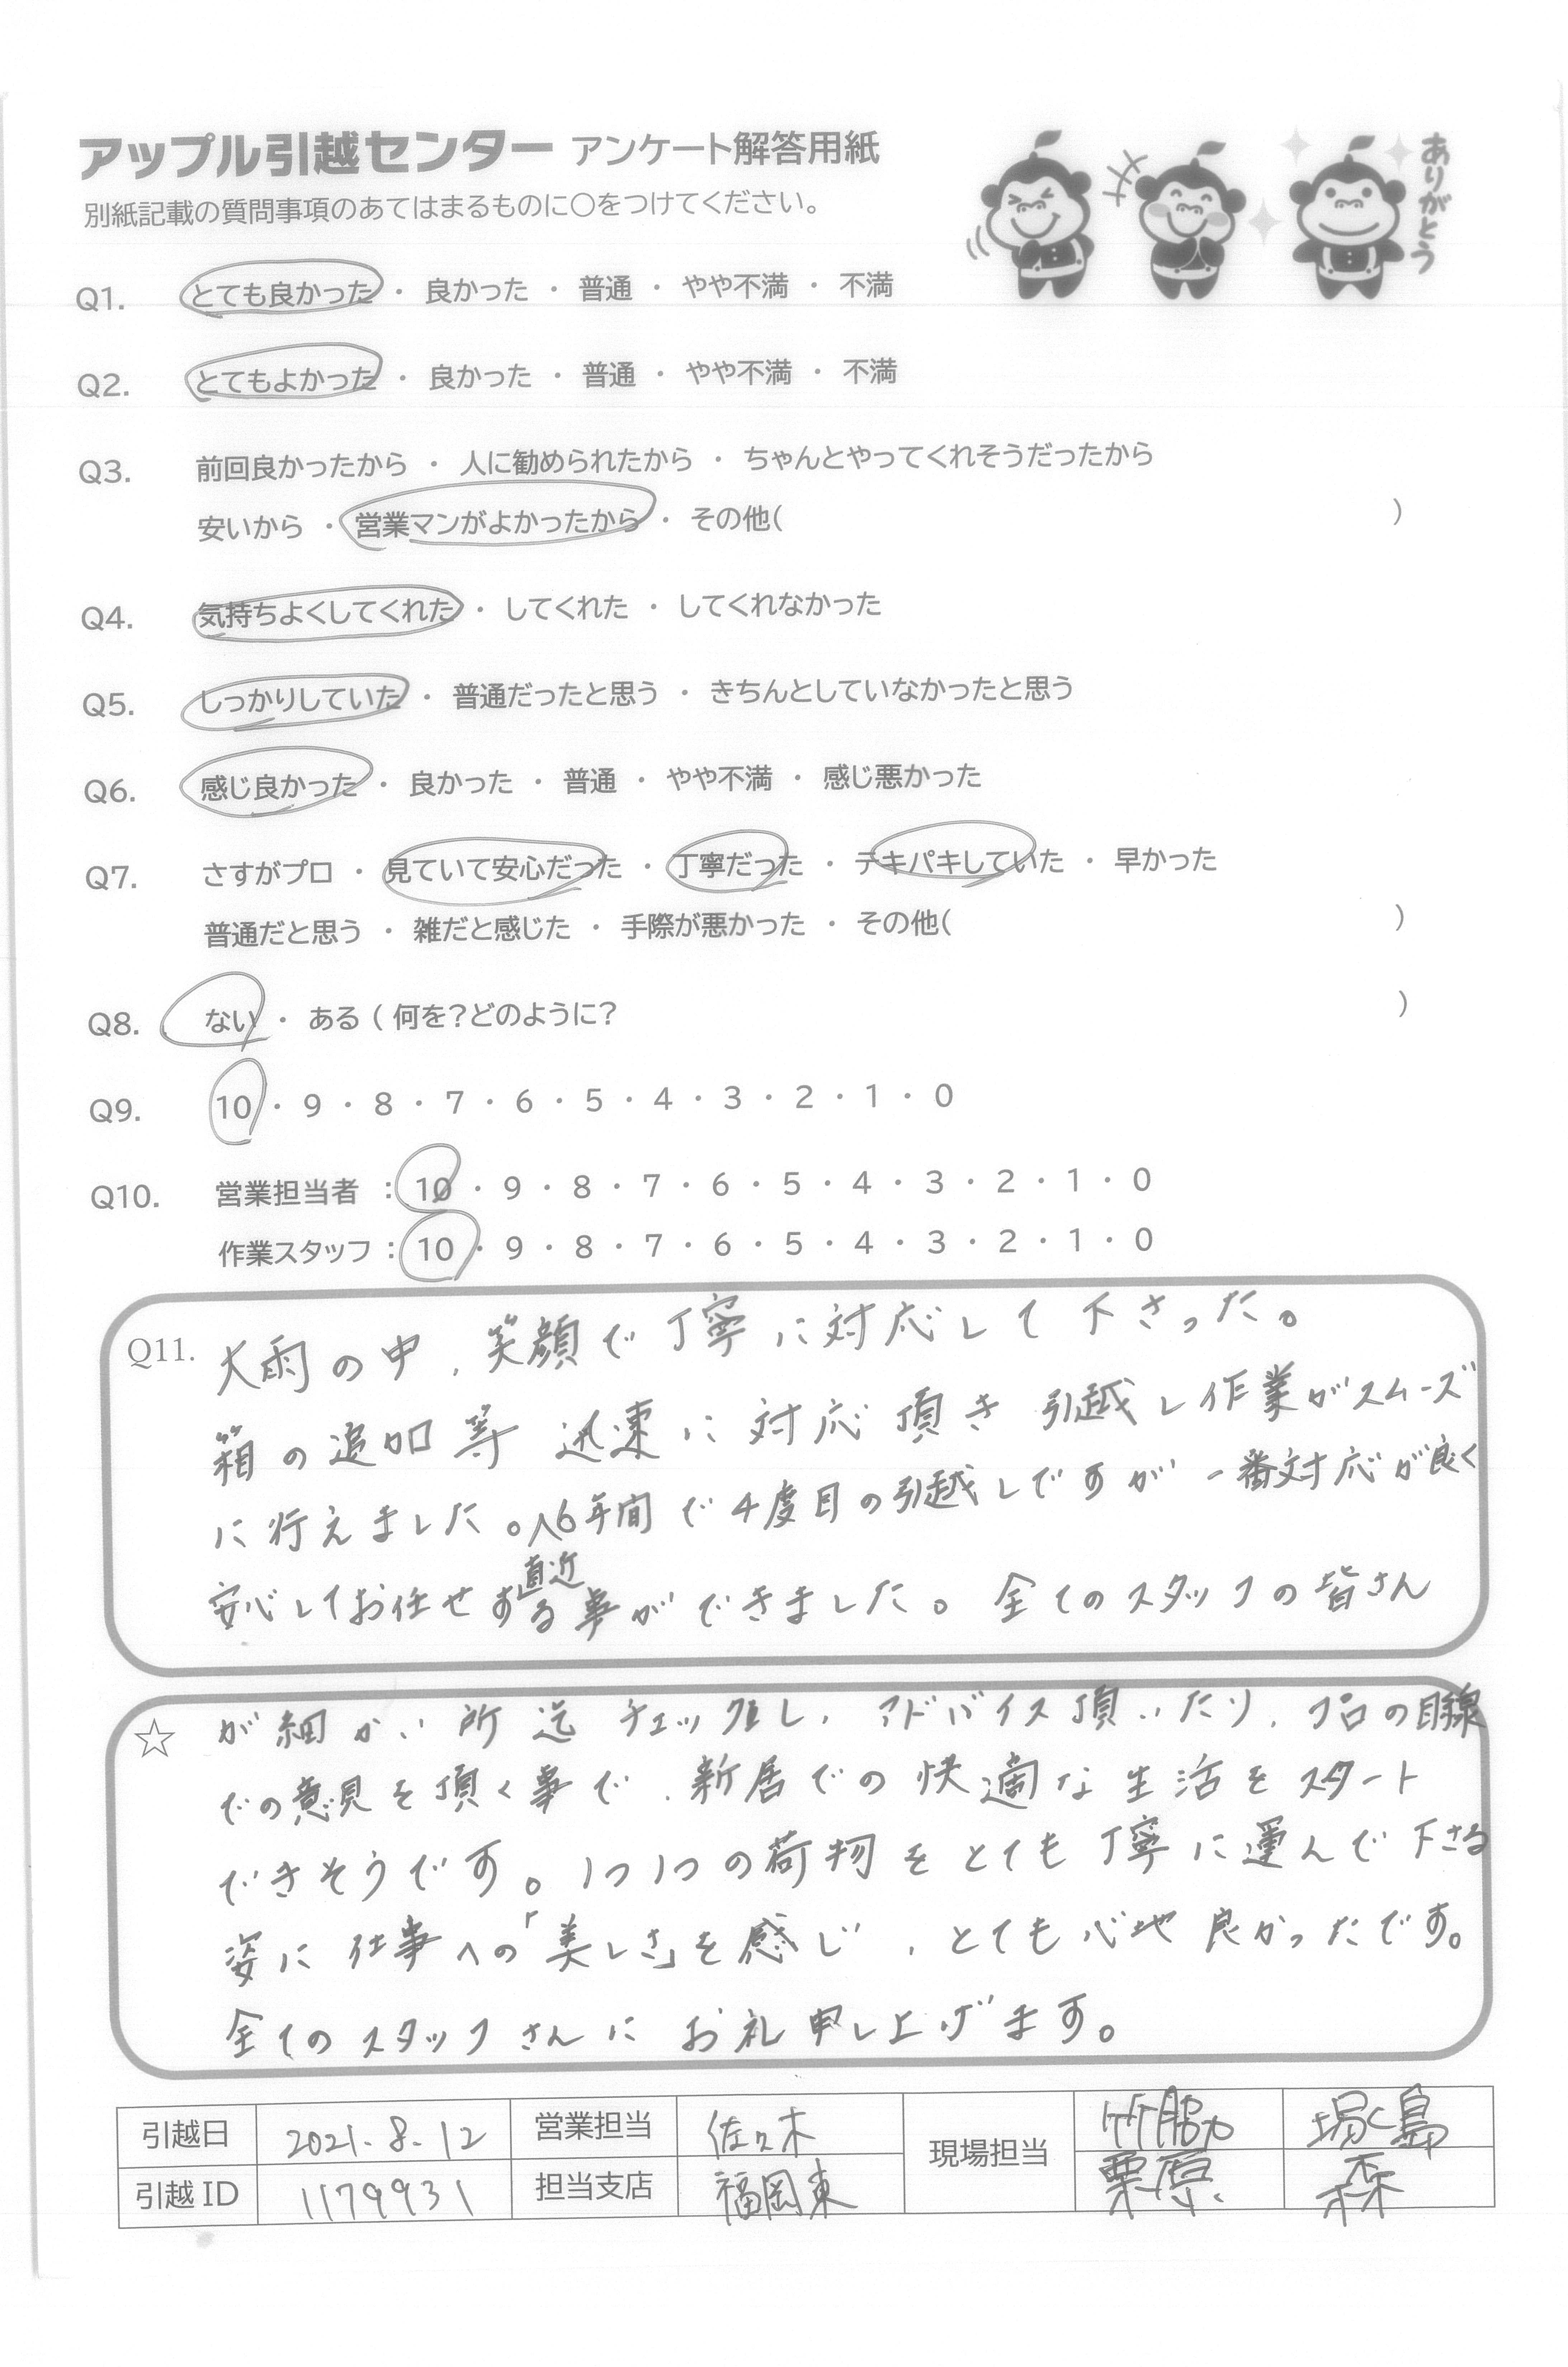 アップル引越センター アンケート解答用紙
別紙記載の質問事項のあてはまるものに〇をつけてください。
ありがとう
Q1. とても良かった ・ 良かった ・ 普通 ・ やや不満 ・ 不満
Q2. とてもよかった ・ 良かった ・ 普通 ・ やや不満 ・ 不満
Q3. 前回良かったから ・ 人に勧められたから ・ ちゃんとやってくれそうだったから
安いから ・ 営業マンがよかったから ・ その他( )
Q4. 気持ちよくしてくれた ・ してくれた ・ してくれなかった
Q5. しっかりしていた ・ 普通だったと思う ・ きちんとしていなかったと思う
Q6. 感じ良かった ・ 良かった ・ 普通 ・ やや不満 ・ 感じ悪かった
Q7. さすがプロ ・ 見ていて安心だった ・ 丁寧だった ・ テキパキしていた ・ 早かった
普通だと思う ・ 雑だと感じた ・ 手際が悪かった ・ その他( )
Q8. ない ・ ある ( 何を?どのように? )
Q9. 10 ・ 9 ・ 8 ・ 7 ・ 6 ・ 5 ・ 4 ・ 3 ・ 2 ・ 1 ・ 0
Q10. 営業担当者 : 10 ・ 9 ・ 8 ・ 7 ・ 6 ・ 5 ・ 4 ・ 3 ・ 2 ・ 1 ・ 0
作業スタッフ : 10 ・ 9 ・ 8 ・ 7 ・ 6 ・ 5 ・ 4 ・ 3 ・ 2 ・ 1 ・ 0
Q11. 大雨の中、笑顔で丁寧に対応して下さった。
箱の追加等 迅速に対応頂き 引越し作業がスムーズ
に行えました。直近6年間で4度目の引越しですが 一番対応が良く
安心してお任せする事ができました。全てのスタッフの皆さん
☆ が細かい所迄 チェックし、アドバイス頂いたり、プロの目線
での意見を頂く事で、新居での快適な生活をスタート
できそうです。1つ1つの荷物をとても丁寧に運んで下さる
姿に仕事への「美しさ」を感じ、とても心地良かったです。
全てのスタッフさんにお礼申し上げます。
引越日 2021.8.12 営業担当 佐々木 現場担当 竹脇 島
引越ID 1179931 担当支店 福岡東 栗原 森